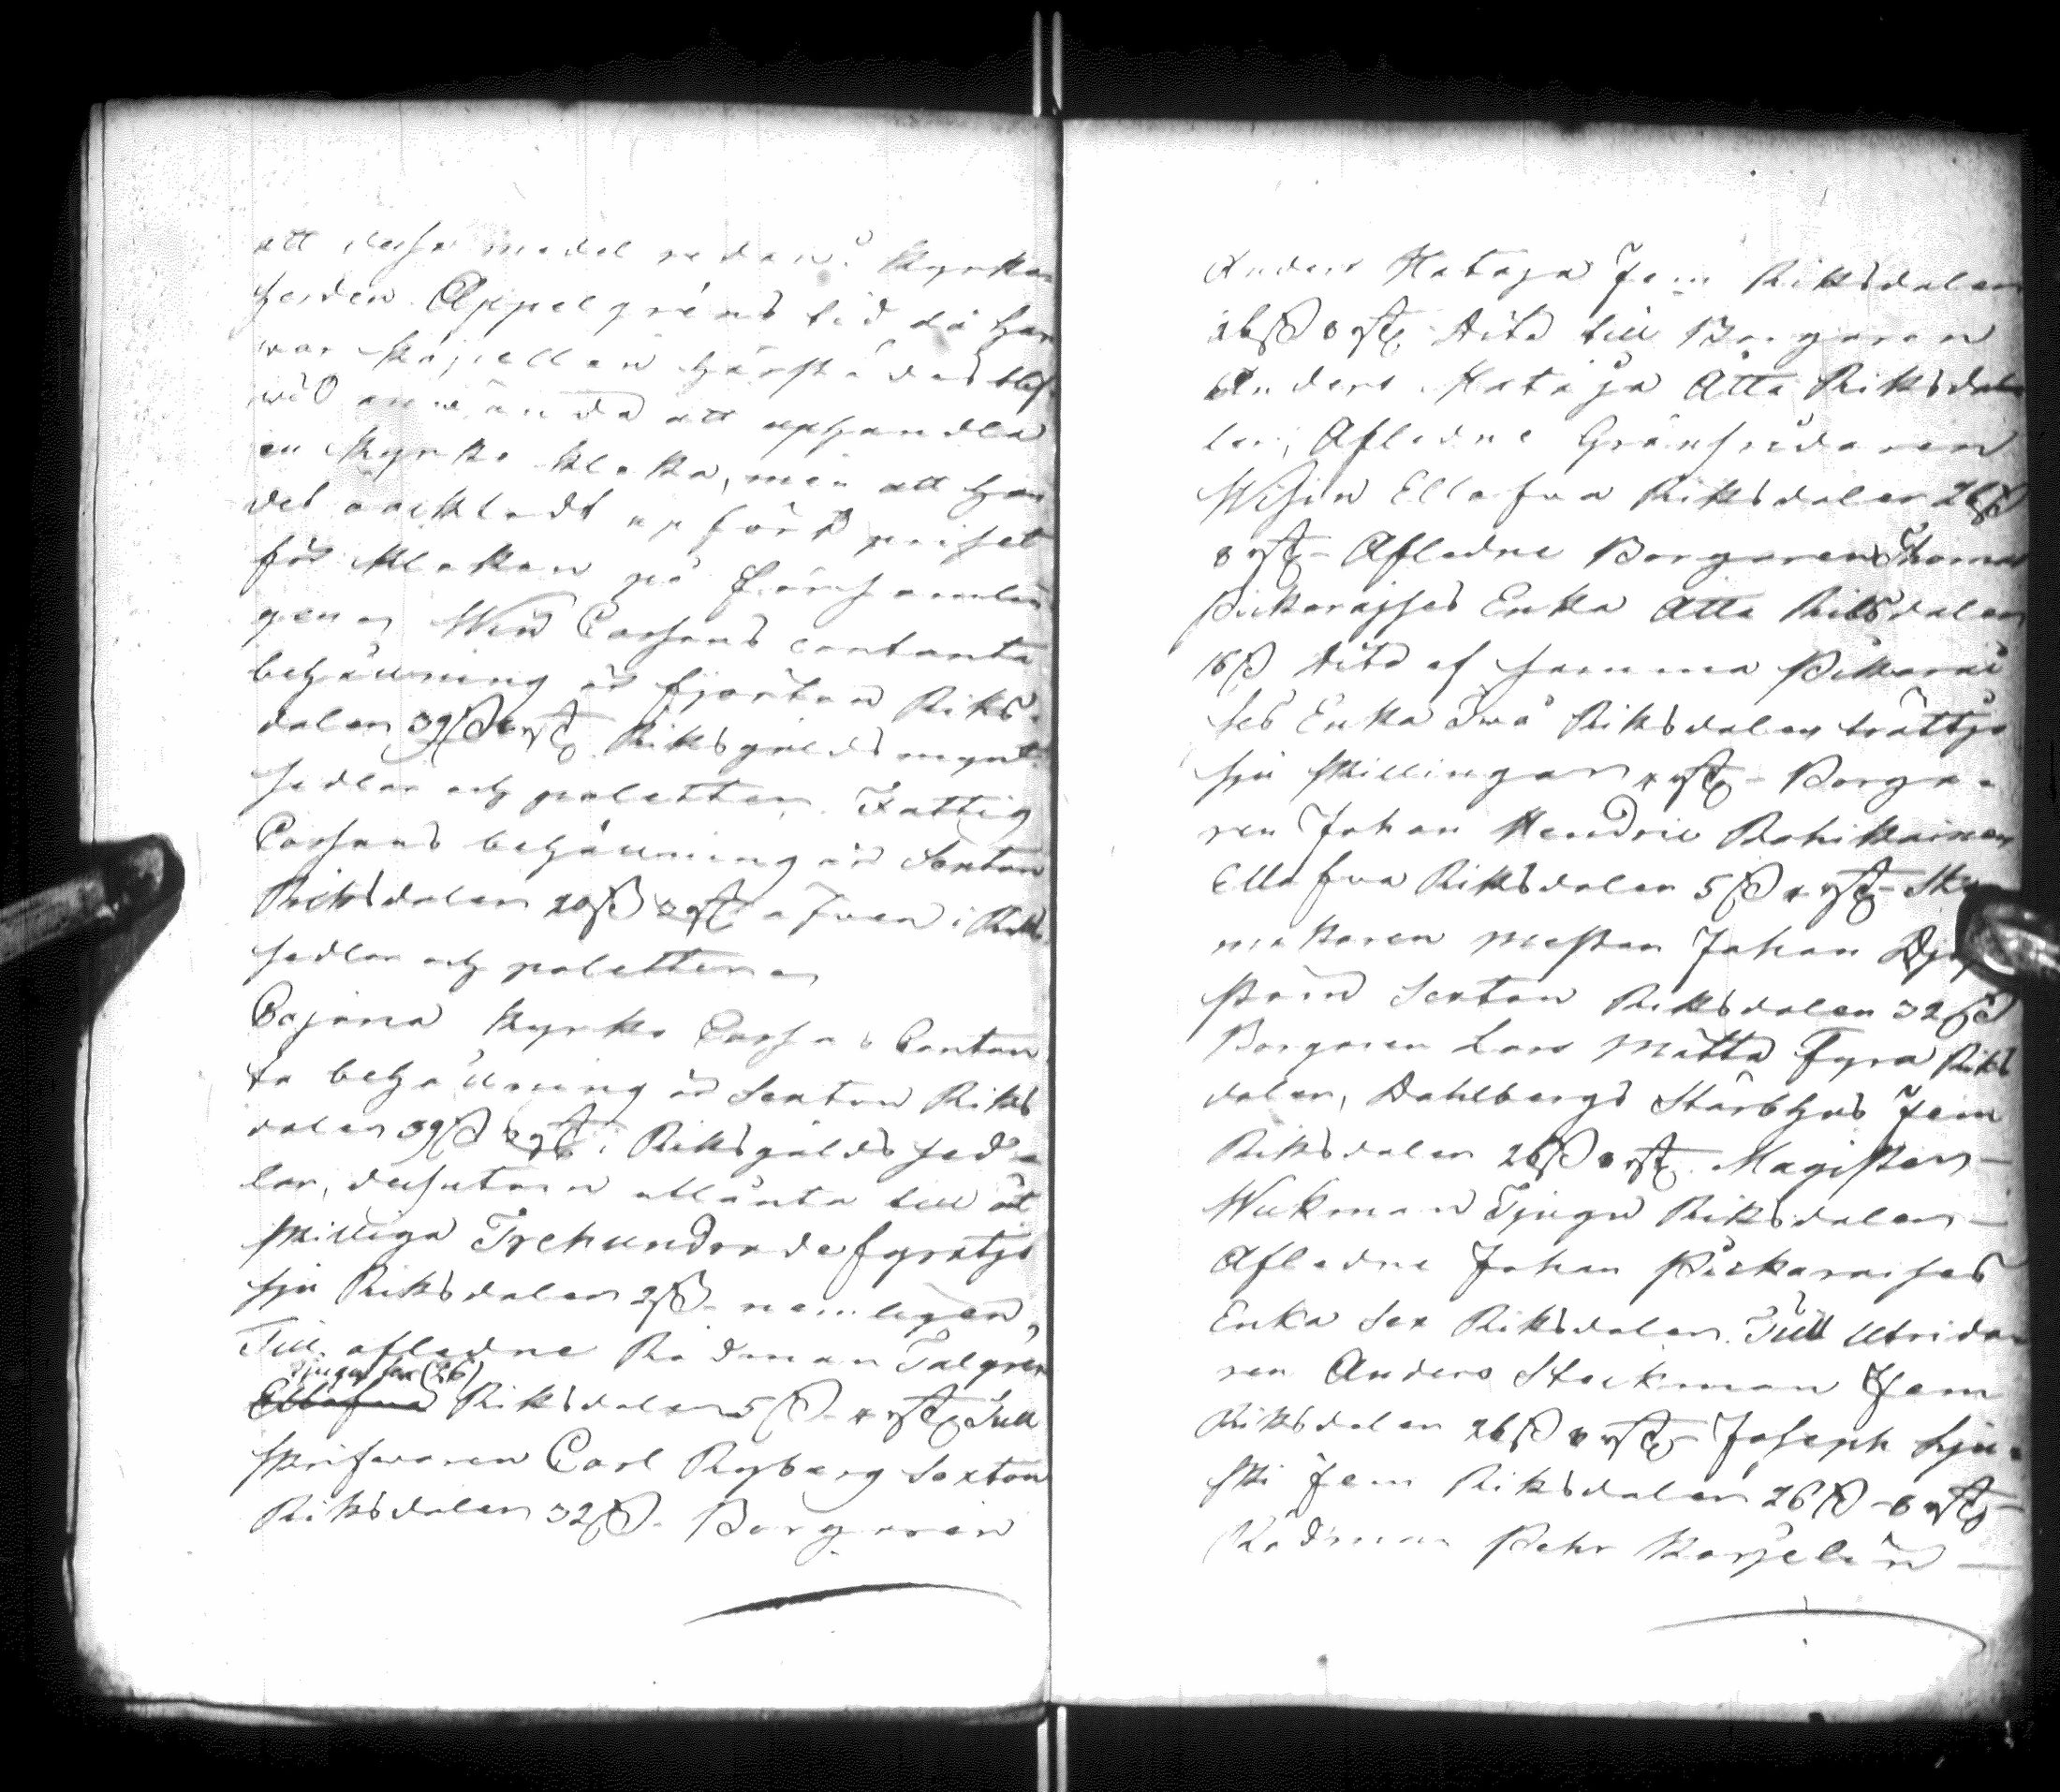 att desse medel redan i Kyrko-
herden Appelgréns tid då han
var Kapellan härstädes blef-
vid använda att uphandla
en Kyrko klocka, men att han
det oacktadt upförd priset
för Klockan på Församlin
gen. Win Cassans contanta
behållning är fjorton Riks-
daler 39 ß rst. Riksgälds mynt
sedlar och poletter. Fattig
Cassans behållning är Sexton
Riksdaler 20 ß rst. äfven i Riks
sedlar och poletter
Cajana Kyrko Cassas Contan
ta behållning är Sexton Riks
daler 39 ß rst. i Riksgälds sed-
lar, dessutom utlånta till åt
skilliga Trehundrade fyratjo
sju Riksdaler 2 ß nemligen,
Till afledne Rådman Falgren
Tjugu sex (26)
Ellofva Riksdaler 5 ß 4 rst. Till
Skrifvaren Carl Ryberg Sexton
Riksdaler 32 ß. Borgaren
Anders Hataja Fem Riksdaler
26 ß 8 rst. dito till Borgaren
Anders Hataja Åtta Riksda
ler, Afledne Gränsridaren
Wisin Ellofva Riksdaler 26 ß
8 rst. Afledne Borgaren Thomas
Pickaraises Enka Åtta Riksdaler
16 ß dito af samma Pikarai
ses Enka Två Riksdaler trättjo
sju skillingar 4 rst. Borga-
ren Johan Hendric Rahikainen
Ellofva Riksdaler 5 ß 4 rst. Sko
makaren mestar Johan
ström Sexton Riksdaler 32 ß
Borgaren Lars Mätta Fyra Riks
daler, Dahlbergs Stärbhus Fem
Riksdaler 26 ß 8 rst. Magister
Wickman Tjugu Riksdaler
Afledne Johan Pickaraises
Enka Sex Riksdaler. Till Utrida
ren Anders Stockman Fem
Riksdaler 26 ß 8 rst. Joseph Lju-
ski Fem Riksdaler 26 ß 8 rst.
Rådman Pehr Karjelin